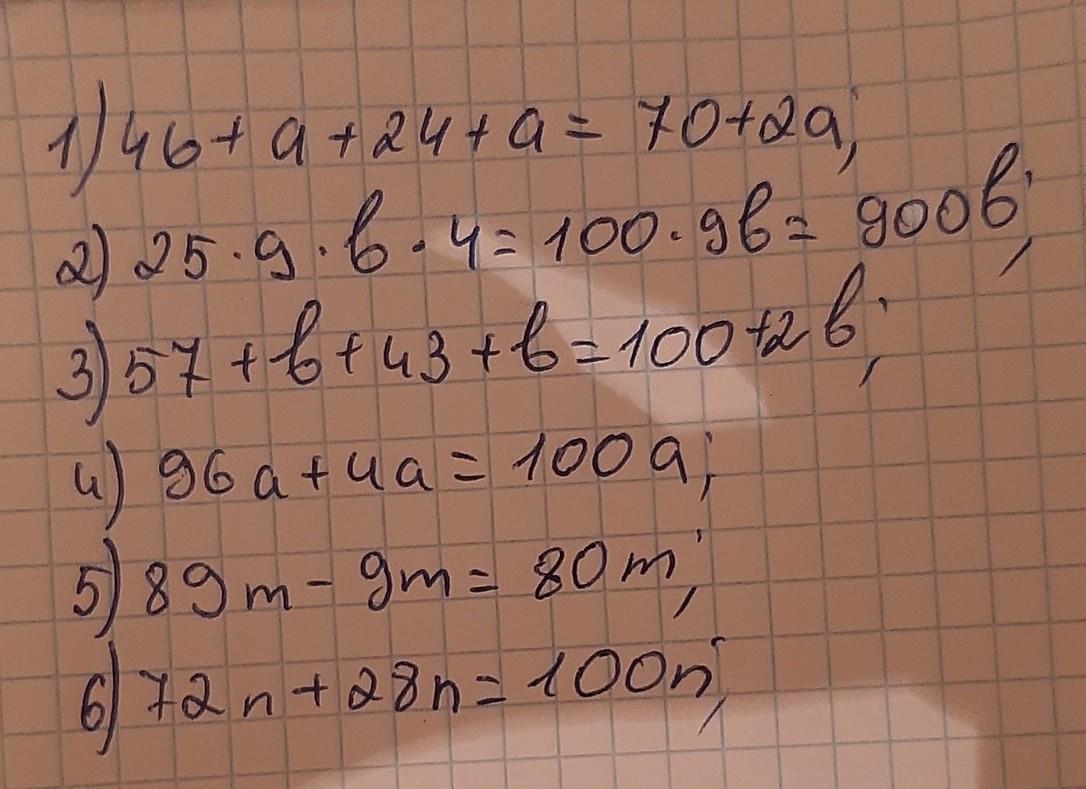 1) 46 + a + 24 + a = 70 + 2a;
2) 25 · 9 · b · 4 = 100 · 9b = 900b;
3) 57 + b + 43 + b = 100 + 2b;
4) 96a + 4a = 100a;
5) 89m - 9m = 80m;
6) 72n + 28n = 100n;